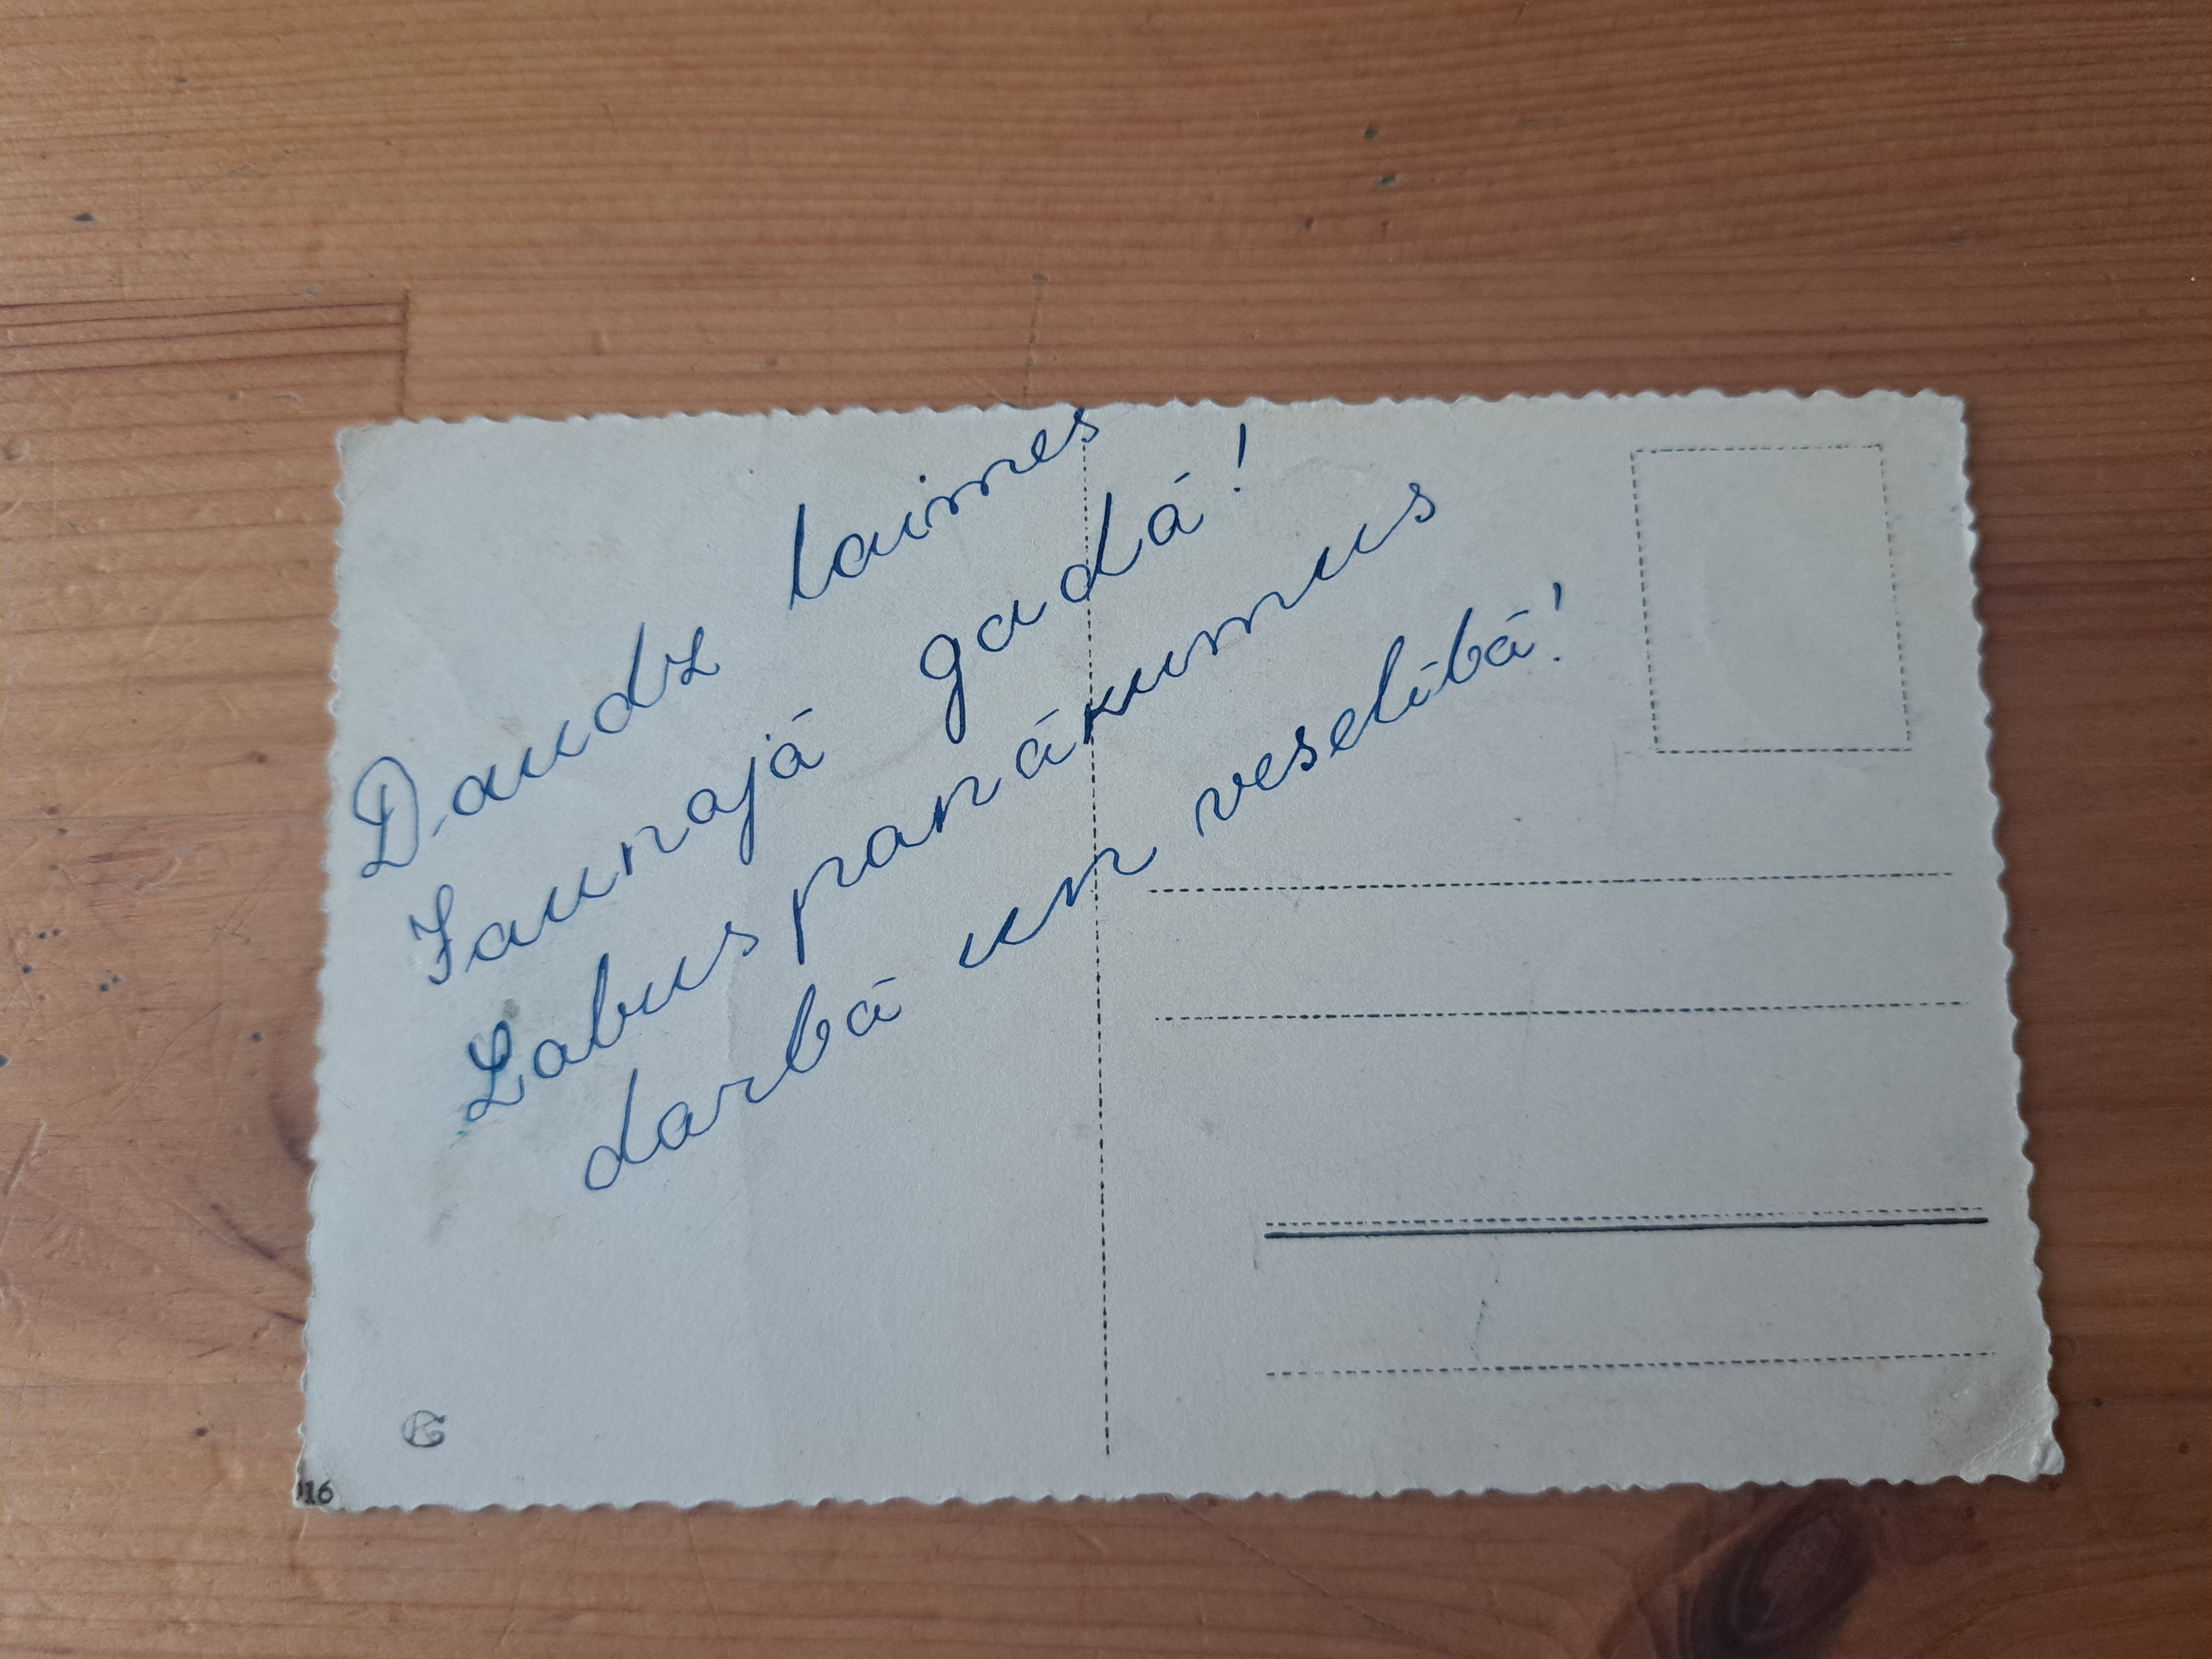 Daudz laimes
Jaunajā gadā!
Labus panākumus
darbā un veselībā!
116